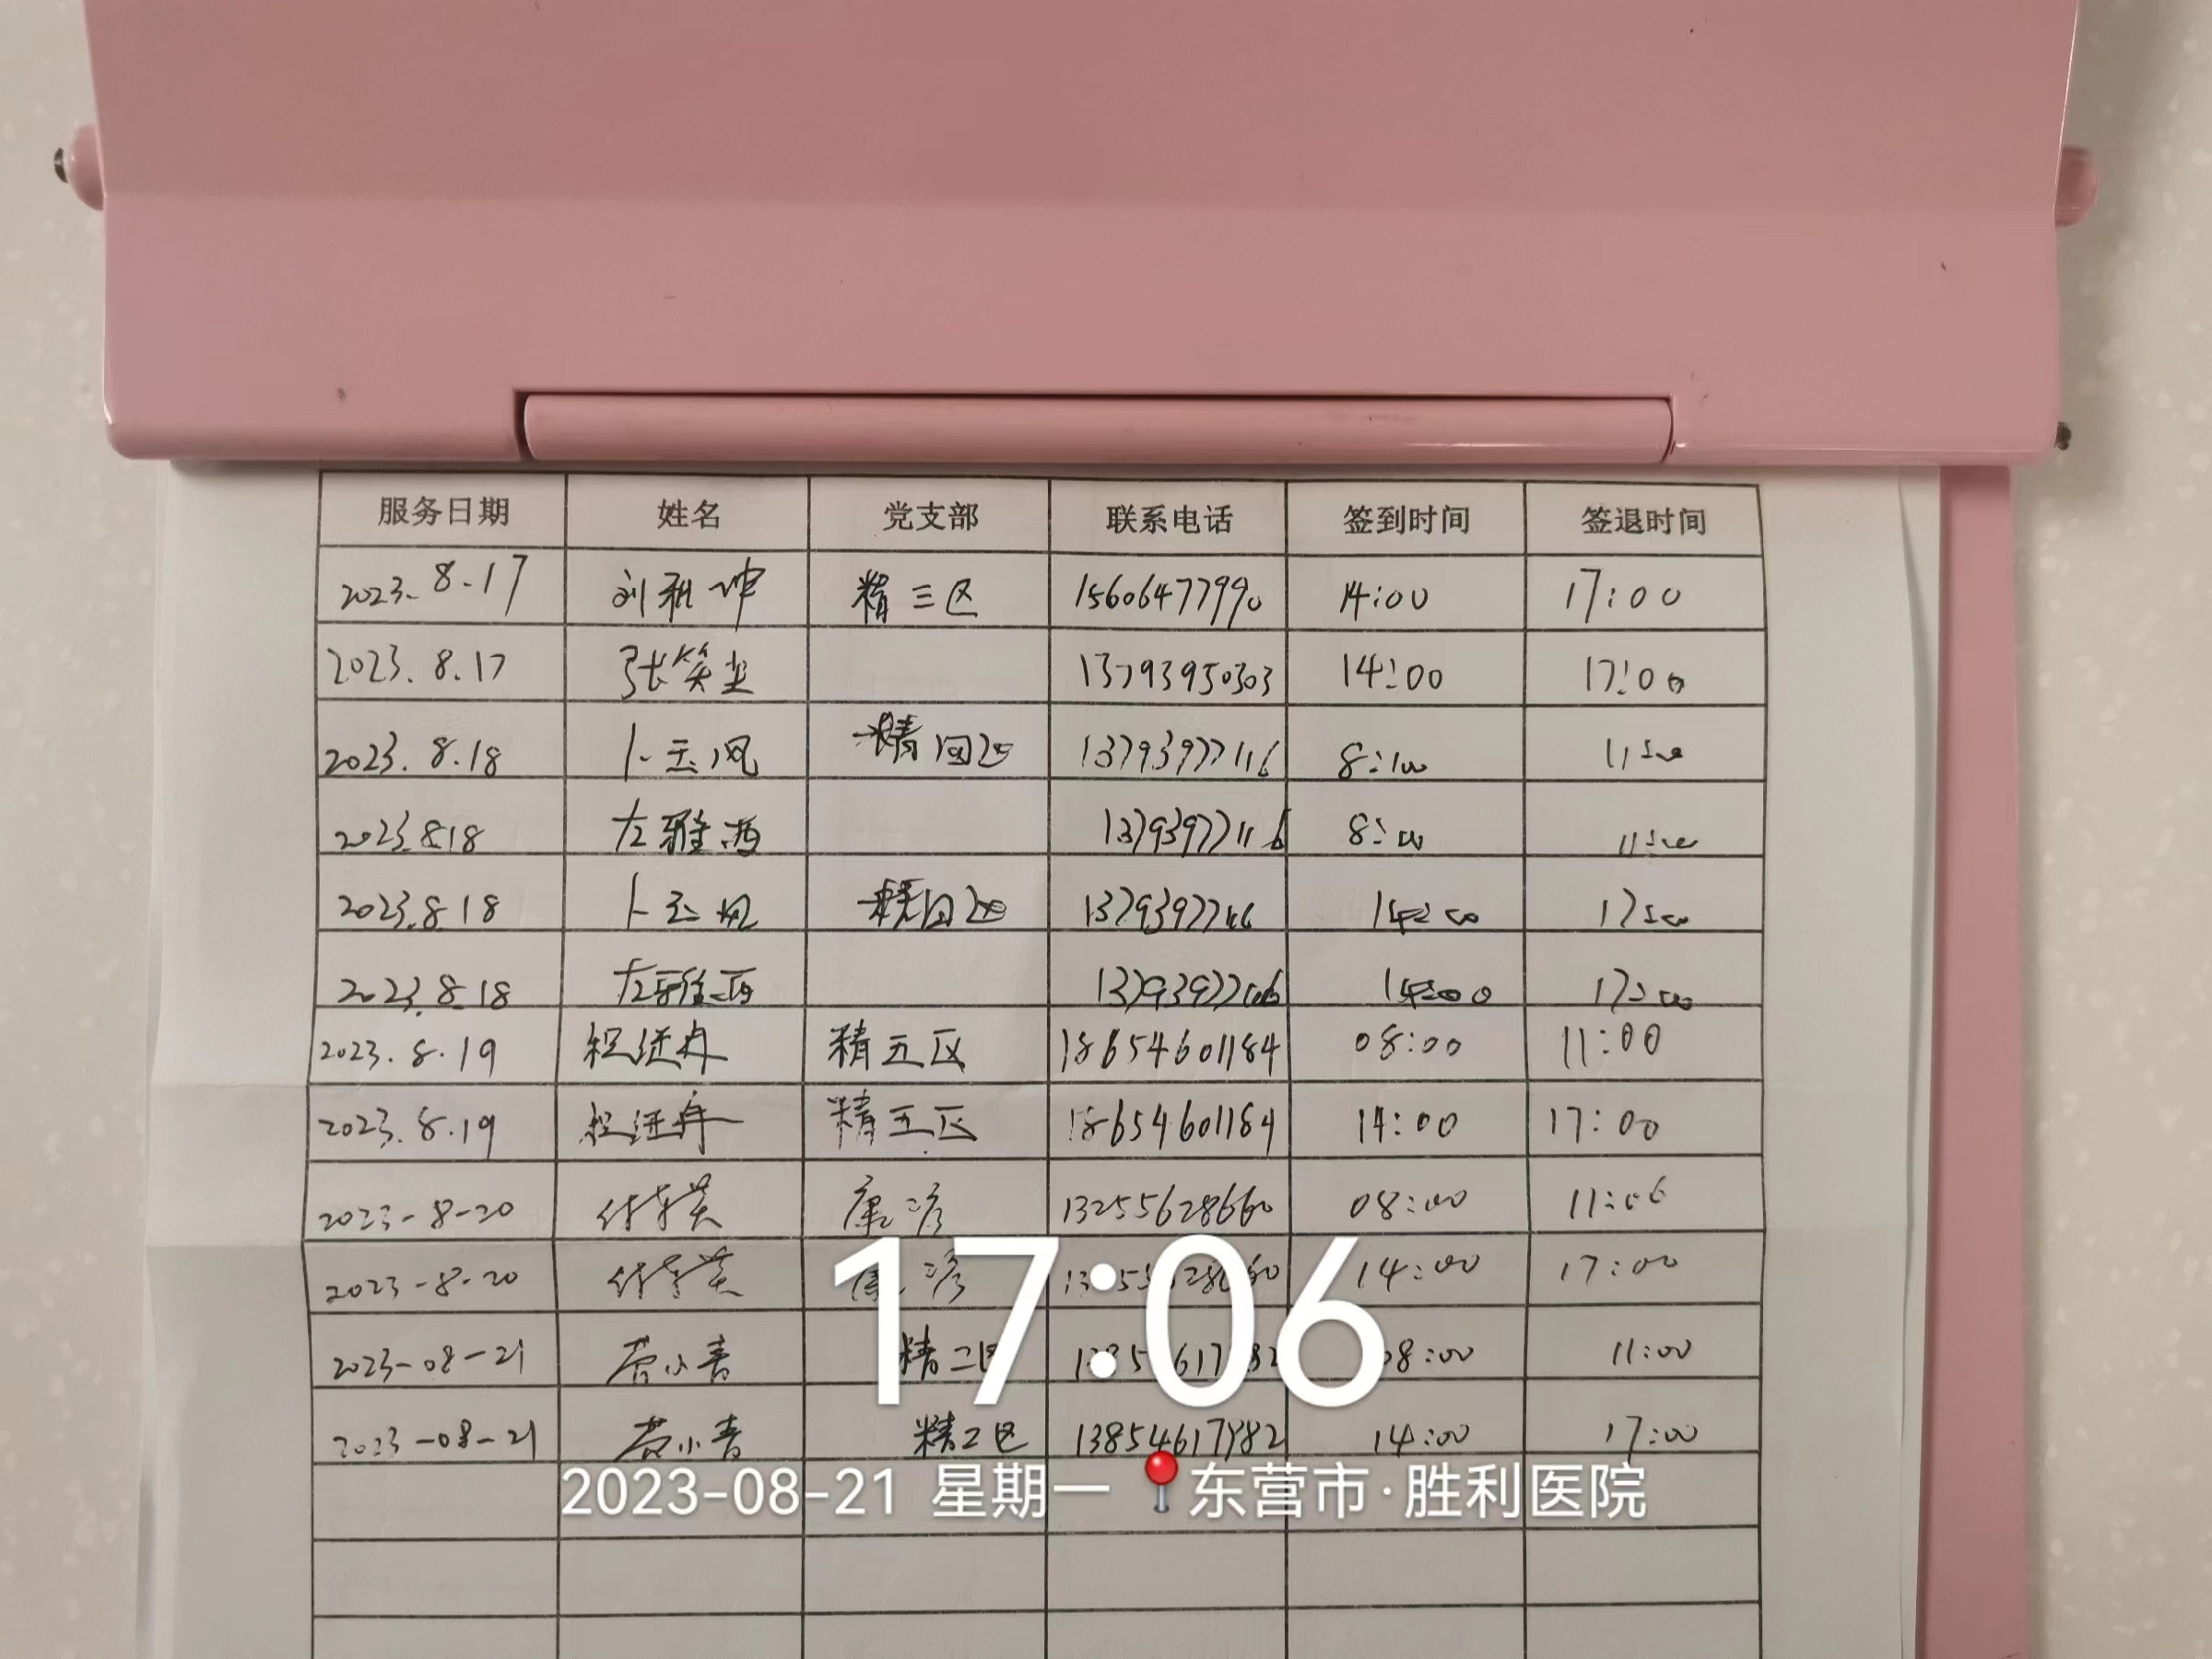 服务日期 姓名 党支部 联系电话 签到时间 签退时间
2023.8.17 刘 坤 精三区 15606477990 14:00 17:00
2023.8.17 张笑尘 13793950303 14:00 17:00
2023.8.18 卜玉凤 精四区 13793977116 8:00 11:00
2023.8.18 左雅西 13793977116 8:00 11:00
2023.8.18 卜玉凤 精四区 14:00 17:00
2023.8.18 左雅西 14:00 17:00
2023.8.19 精五区 18654601184 08:00 11:00
2023.8.19 精五区 18654601184 14:00 17:00
2023-8-20 付 英 13255628660 08:00 11:00
2023-8-20 付 英 14:00 17:00
2023-08-21 小青 精二区 08:00 11:00
2023-08-21 小青 精二区 14:00 17:00
17:06
2023-08-21 星期一 东营市·胜利医院